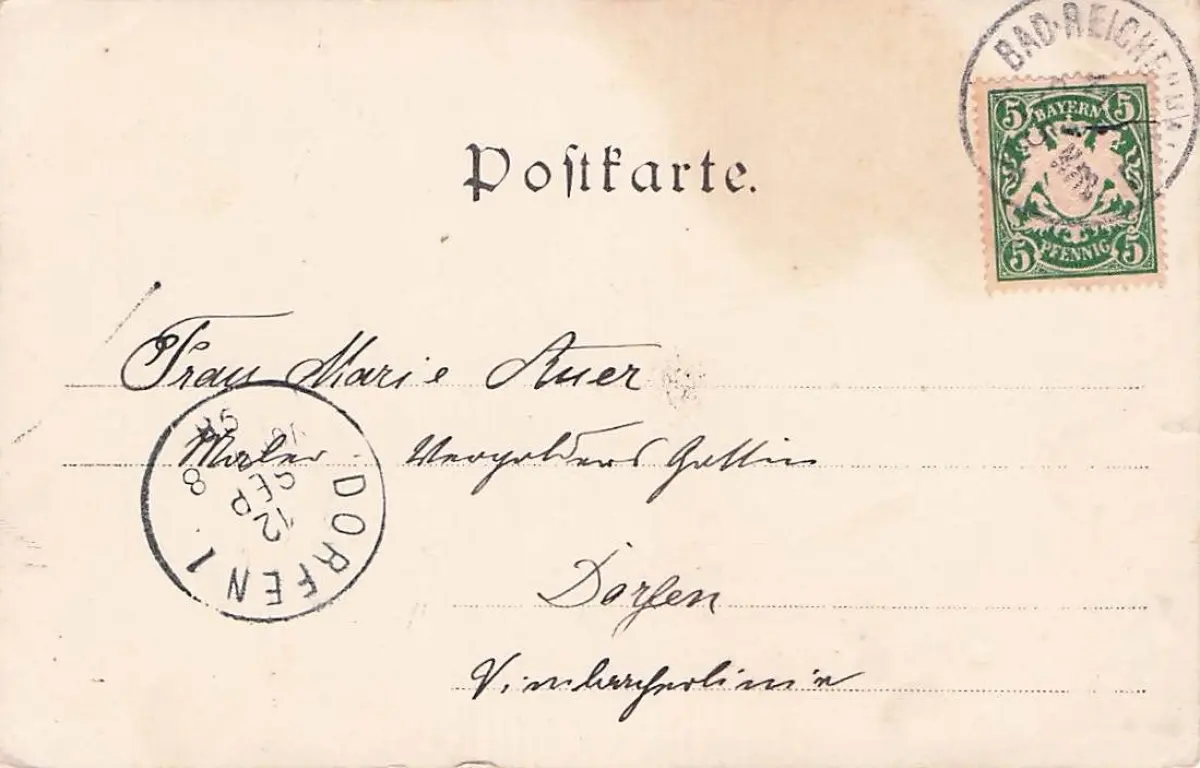 BAD·REICHENHALL
5 BAYERN 5
5 PFENNIG 5
Postkarte.
Frau Marie Auer
Maler - Vergolders Gattin
DORFEN 1
12
SEP
8
Dorfen